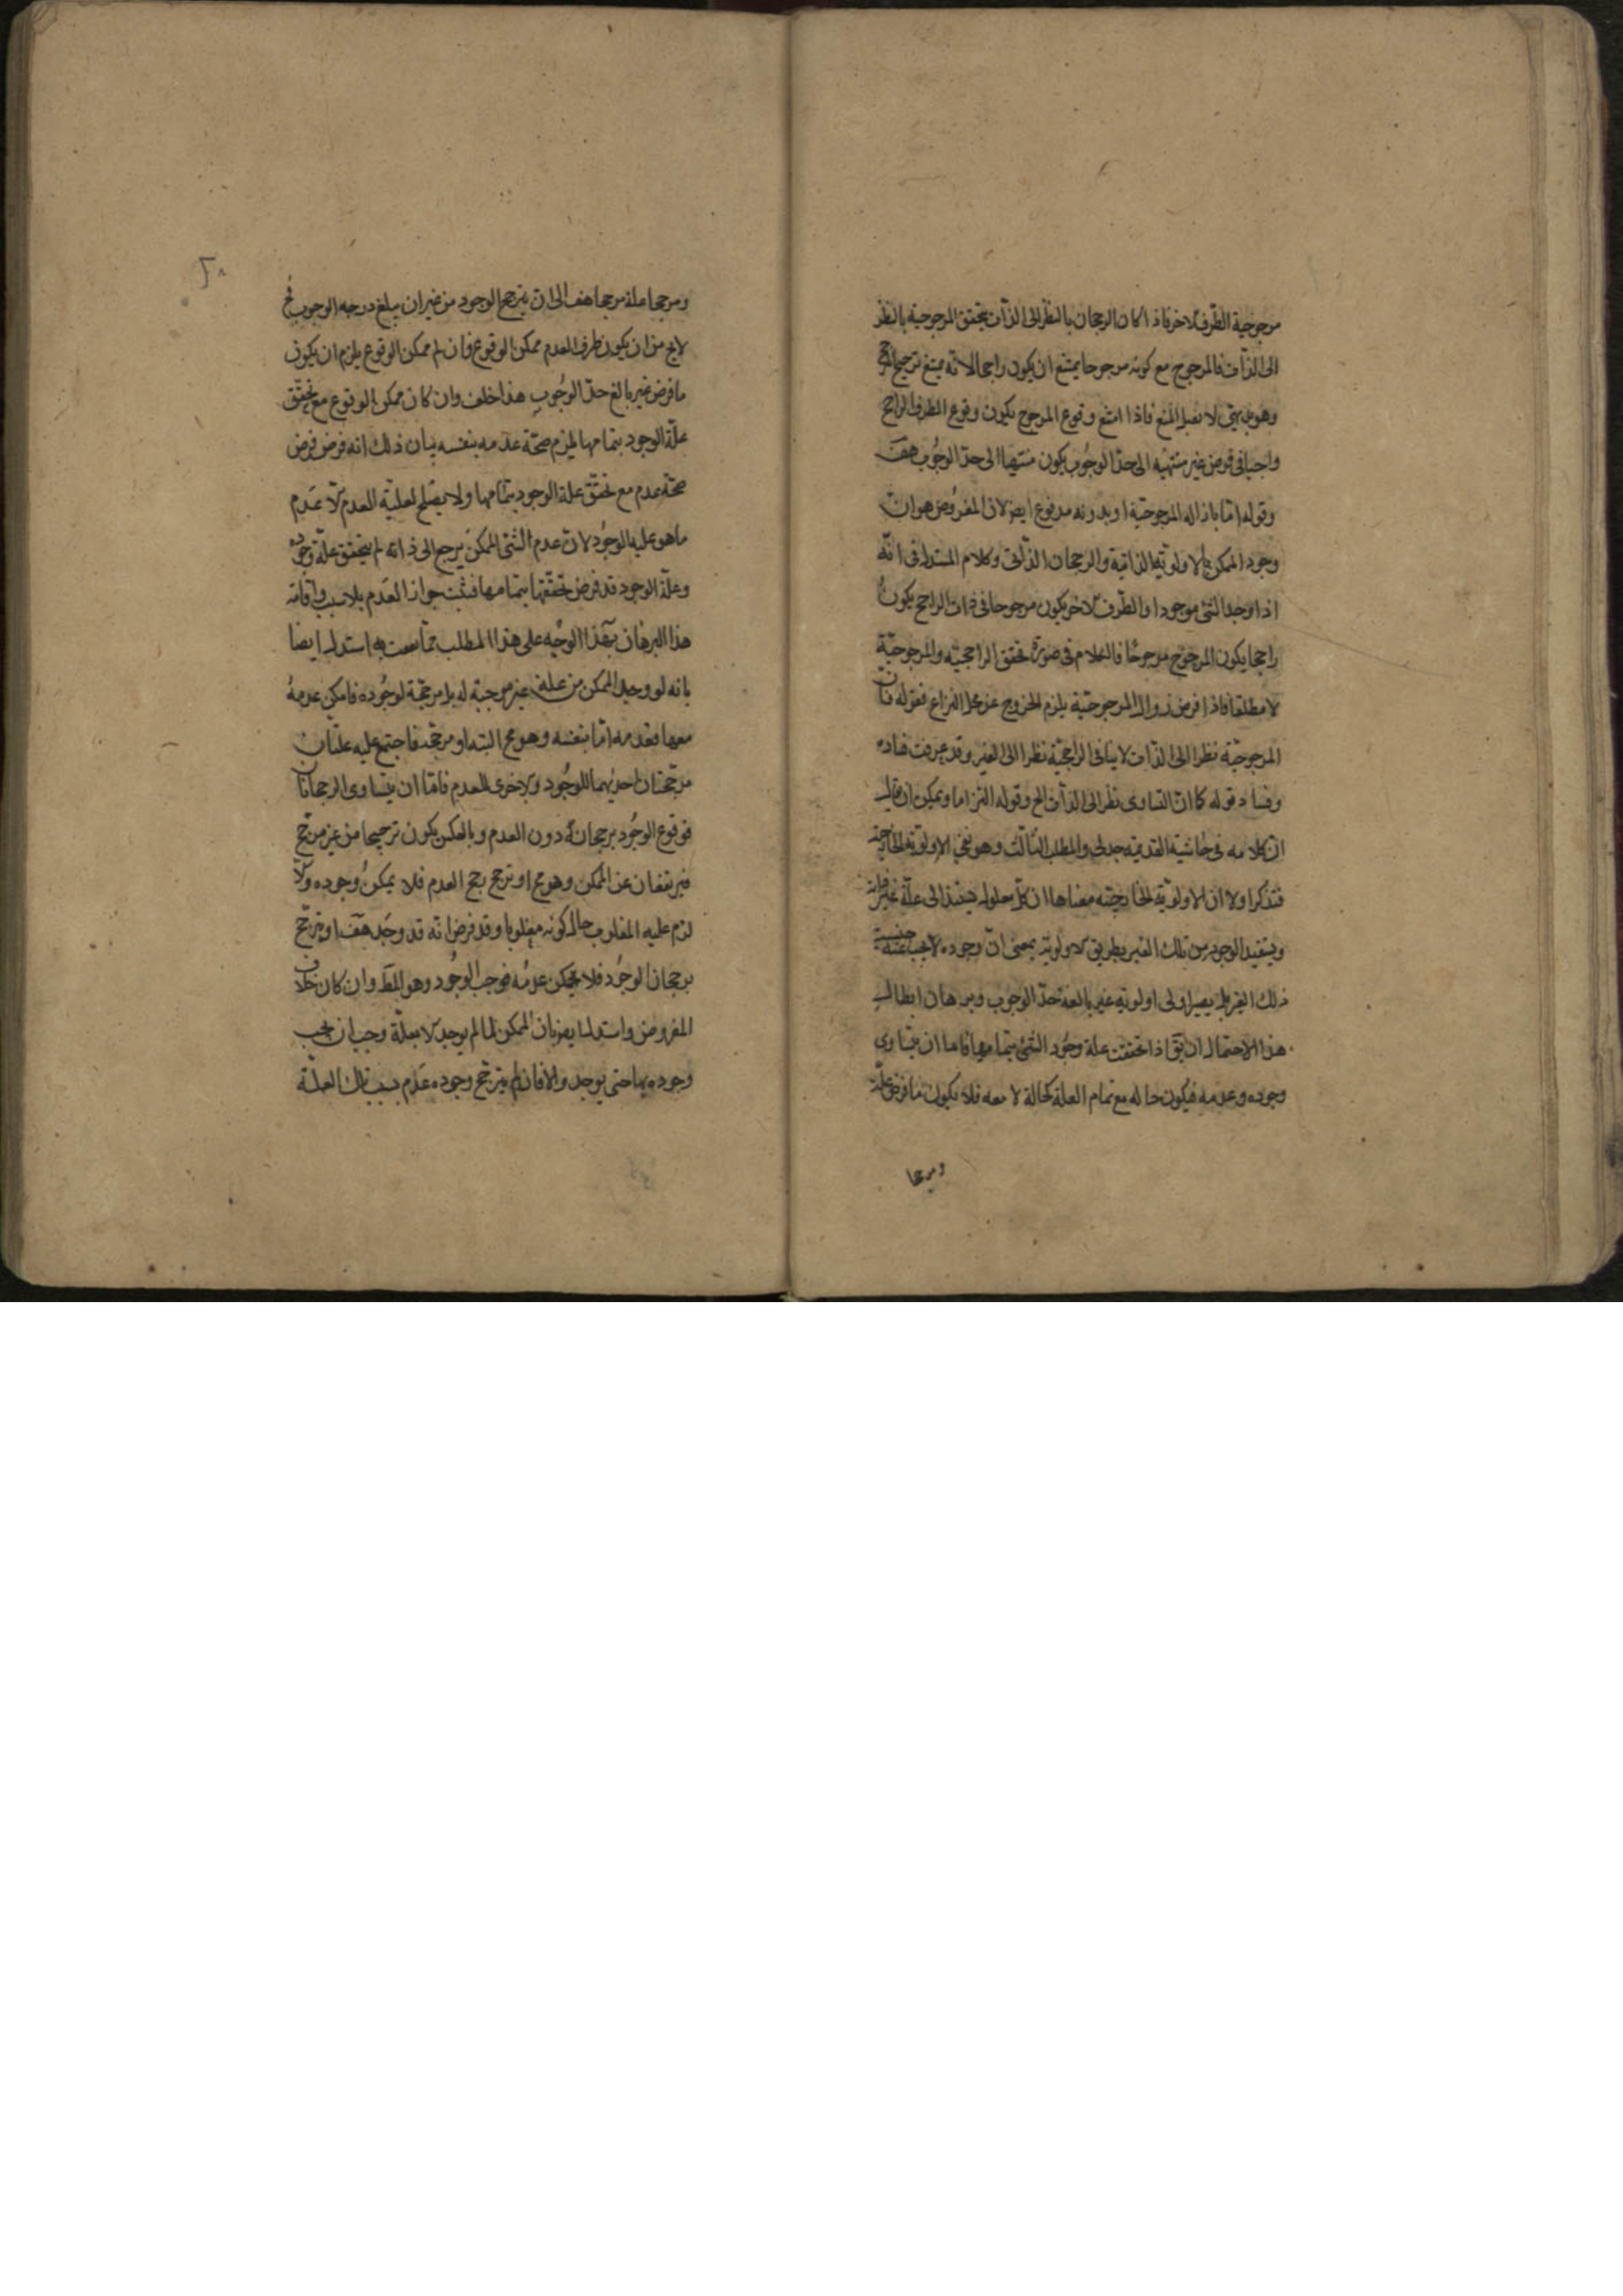 مرجوحية الطّرف الاخر فاذا كان الرجحان بالنظر الى الذّات تحقق المرجوحية بالنظر
الى الذّات فالمرجوح مع كونه مرجوحا يمتنع ان يكون راجحا لانّه يمتنع ترجيح المرجوح
وهو بديهي لا يقبل المنع فاذا امتنع وقوع المرجوح يكون وقوع الطرف الراجح
واجبا في فرض غير منتهيه الى حدّ الوجُوب يكون منتهيا الى حدّ الوجُوب هف
وقوله امّا بازاله المرجوحيّة او بدونه مدفوع ايضا لان المفرُوض هو ان
وجود الممكن بالاولويّة الذاتية والرجحان الذّاتي وكلام المستدل في انّه
اذا وجد الشئ موجودا والطّرف الاخر يكون مرجوحا في ذات الراجح يكونُ
راجحا يكون المرجُوح مرجوحًا فالكلام في صورة تحقق الراجحيّة والمرجوحيّة
لا مطلقا فاذا فرض زوال المرجوحيّة يلزم الخروج عن محل النزاع فقوله فان
المرجوحيّة نظرا الى الذّات لا ينافي الراجحيّة نظرا الى الغير وقد عرفت فساده
وفساد قوله كما انّ التساوي نظر الى الذات الخ وقوله التزاما ويمكن ان يقال
انّ كلامه في حاشية القديمة جدلي والمطلب الثالث وهو نفي الاولويّة الخارجية
فتذكر اولا ان الاولويّة الخارجيّة معناها ان كلّ معلول يستند الى علّة غير ذاته
ويستفيد الوجود من تلك الغير بطريق الاولويّة بمعنى انّ وجوده لا يجب عنه
ذلك الغير بل يصير اولى اولويّة غير بالغة حدّ الوجوب وبرهان ابطال
هذا الاحتمال ان يقّ اذا تحققت علة وجُود الشئ بتمامها فاما ان يتساوى
وجوده وعدمه فيكون حاله مع تمام العلة كحالة لا معه فلا يكون ما فرض علّة
ومرجحا
٢٨
ومرجحا علة مرجحا هف الى ان يترجح الوجود من غير ان يبلغ درجه الوجوب فح
لايخ من ان يكون طرف العدم ممكن الوقوع فان لم ممكن الوقوع يلزم ان يكون
ما فرض غير بالغ حدّ الوجُوب هذا خلف وان كان ممكن الوقوع مع تحقّق
علّة الوجود بتمامها لزم صحّة عدمه بنفسه بيان ذلك انه فرض فرض
صحّة عدم مع تحقّق علة الوجود بتمامها ولا يصلح لعليّة العدم الّا عَدم
ما هو عليه الوجُود لانّ عدم الشئ الممكن يرجع الى ذاته لم يتحقق علّة وجوده
وعلّة الوجود قد فرض تحقّقها بتمامها فثبت جواز العَدم بلا سبب واقامة
هذا البرهان بهذا الوجُه على هذا المطلب ممّا سمعت به استدل ايضا
بانه لو وجد الممكن من علة غير موجبة له بل مرجّحة لوجُوده فامكن عدمهُ
معها فعدمه امّا بنفسه وهو مح البتة او مرجّحه فاجتمع عليه علتان
مرجّحتان احديهما للوجُود والاخرى للعدم فامّا ان يتساوى الرجحانان
فوقوع الوجُود برجحانه دون العدم وبالعكس يكون ترجيحا من غير مرجّح
فيرتفعان عن الممكن وهو مح او ترجح بحج العدم فلا يمكنُ وجوده والّا
لزم عليه المغلوب حال كونه مغلوبا وقد فرض انّه قد وجَد هف او يترجّح
برجحان الوجُود فلا يمكن عدمُه فوجب الوجُود وهو المط وان كان خلاف
المفروض واستدل ايضا بان الممكن لما لم يوجد الا بعلّة وجب ان يجب
وجوده بها حتى يوجد والا فان لم يترجّح وجوده عَدم بسبب تلك العلّة